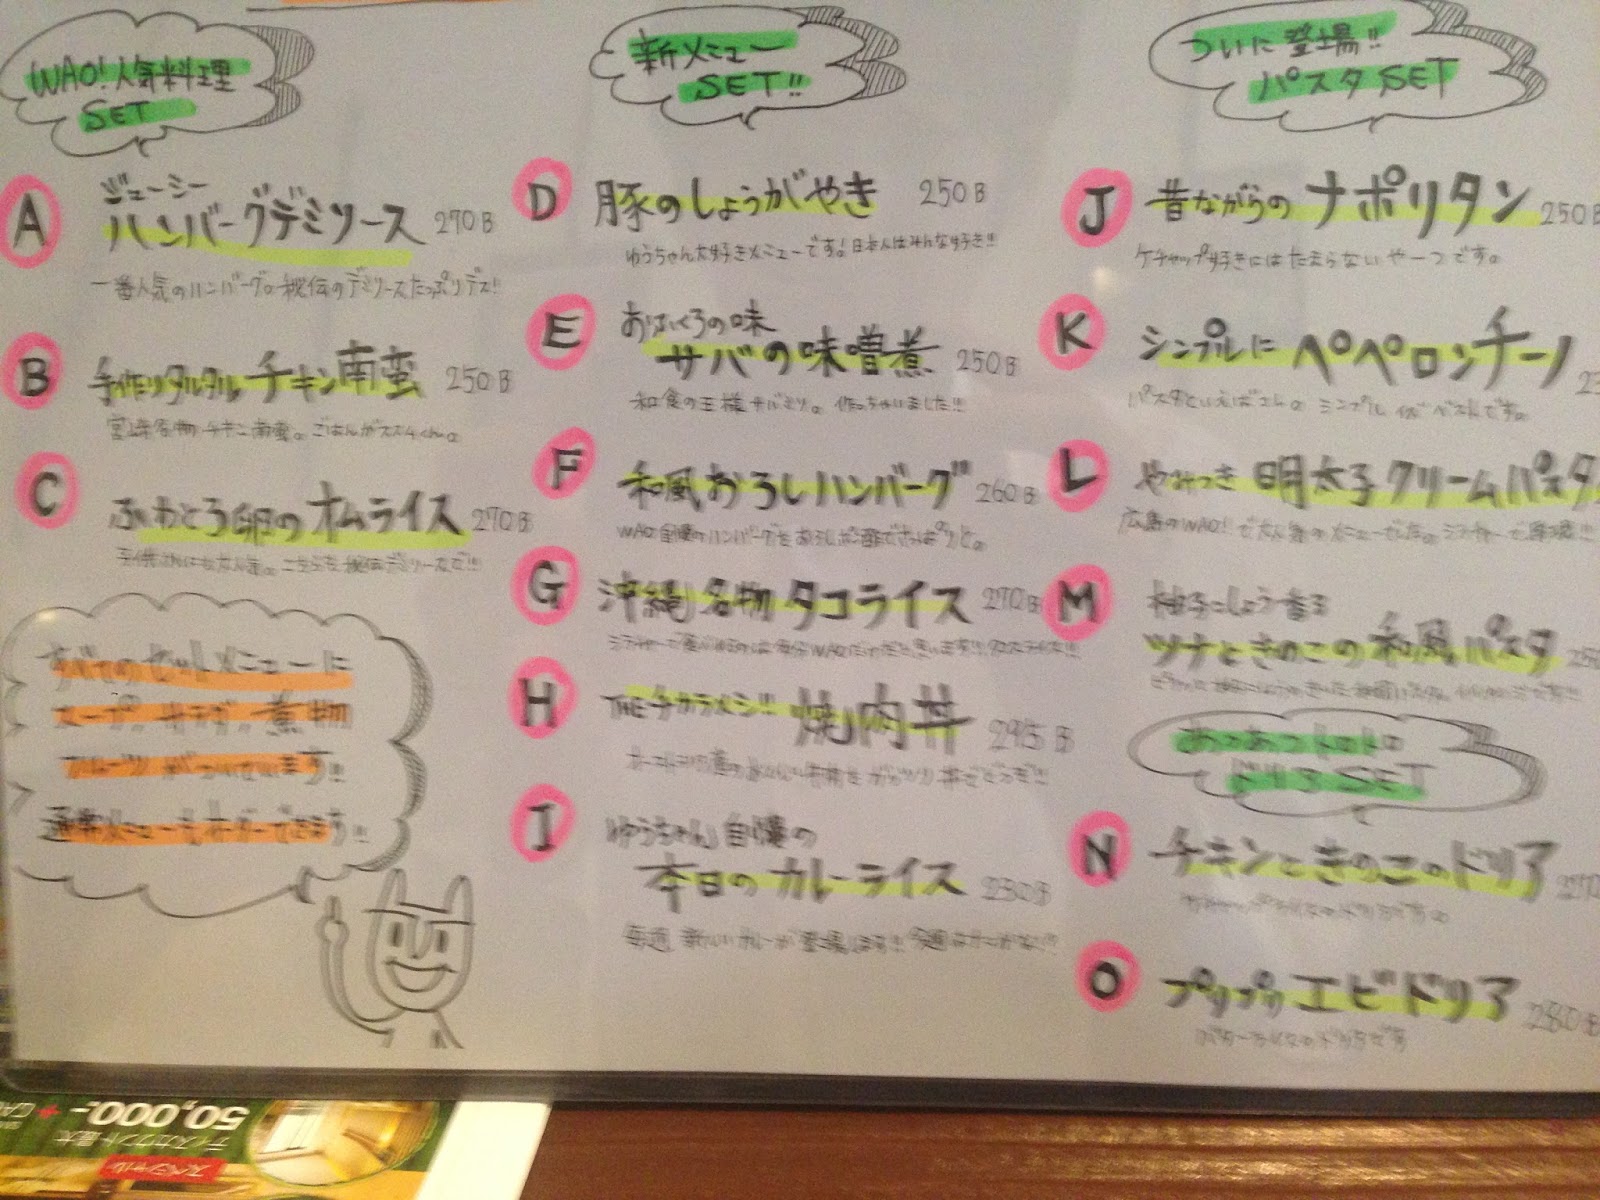 WAO!人気料理
SET
A ジューシー
ハンバーグデミソース 270B
一番人気のハンバーグ。秘伝のデミソースたっぷりデス!!
B 手作りタルタルチキン南蛮 250B
宮崎名物チキン南蛮。ごはんがススムくん。
C ふわとろ卵のオムライス 270B
すべてのセットメニューに
スープ、サラダ、煮物
フルーツがついています!!
通常メニューもオーダーできます!!
新メニュー
SET!!
D 豚のしょうがやき 250B
ゆうちゃん大好きメニューです!日本人はみんな好き!!
E おふくろの味
サバの味噌煮 250B
和食の王様サバミソ。作っちゃいました!!
F 和風おろしハンバーグ 260B
WAO自慢のハンバーグをおろしポン酢でさっぱりと。
G 沖縄名物タコライス 270B
H THEチカラメシ!! 焼肉丼 295B
I ゆうちゃん自慢の
本日のカレーライス 230B
毎週 新しいカレーが登場します!!
ついに登場!!
パスタSET
J 昔ながらのナポリタン 250B
ケチャップ好きにはたまらないやーつです。
K シンプルにペペロンチーノ
パスタといえばコレ。シンプル イズ ベストです。
L やみつき 明太子クリームパスタ
M 柚子こしょう香る
ツナときのこの和風パスタ
あつあつトロトロ
ドリアSET
N チキンときのこのドリア 270
O プリプリエビドリア 280B
50,000.-
ディスカウント最大
スペシャル